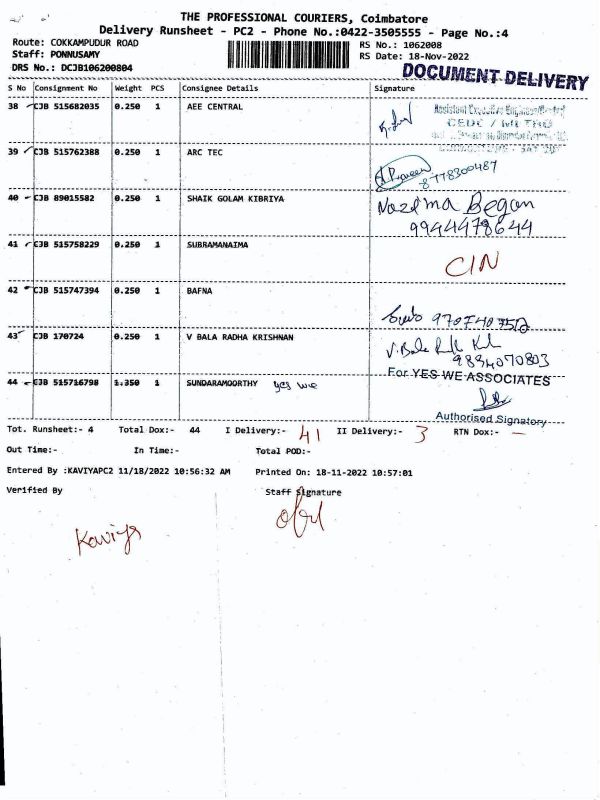 THE PROFESSIONAL COURIERS, Coimbatore
Delivery Runsheet - PC2 - Phone No.:0422-3505555 - Page No.:4
Route: COKKAMPUDUR ROAD RS No.: 1062008
Staff: PONNUSAMY RS Date: 18-Nov-2022
DRS No.: DCJB106200804 DOCUMENT DELIVERY
S No Consignment No Weight PCS Consignee Details Signature
38 CJB 515682035 0.250 1 AEE CENTRAL
CEDC / METRO
39 CJB 515762388 0.250 1 ARC TEC
8778300487
40 CJB 89015582 0.250 1 SHAIK GOLAM KIBRIYA Nazema Begam
9944478644
41 CJB 515758229 0.250 1 SUBRAMANAIMA
CIN
42 CJB 515747394 0.250 1 BAFNA
43 CJB 170724 0.250 1 V BALA RADHA KRISHNAN
9884070803
For YES WE ASSOCIATES
44 CJB 515716798 1.350 1 SUNDARAMOORTHY yes we
Authorised Signatory
Tot. Runsheet:- 4 Total Dox:- 44 I Delivery:- 41 II Delivery:- 3 RTN Dox:- —
Out Time:- In Time:- Total POD:-
Entered By :KAVIYAPC2 11/18/2022 10:56:32 AM Printed On: 18-11-2022 10:57:01
Verified By Staff Signature
Kaviya